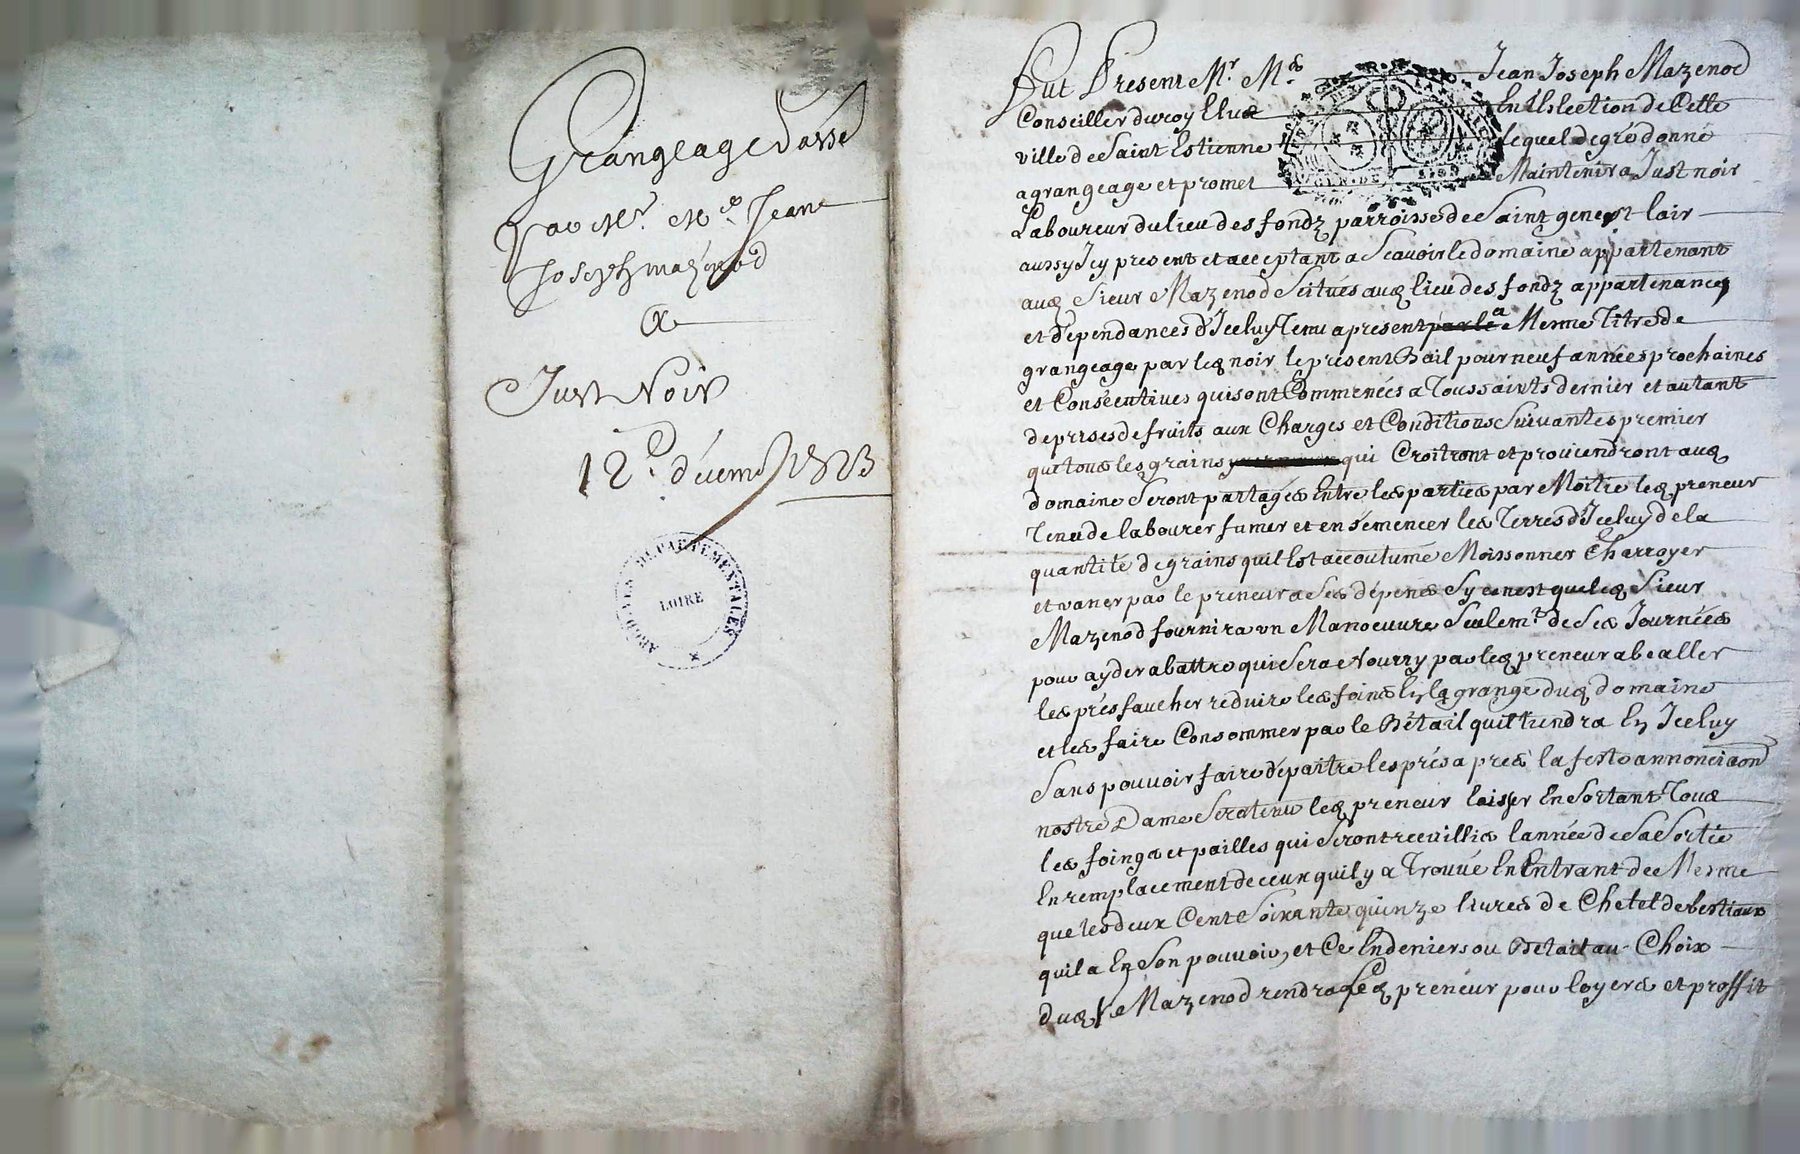 Grangeage Passé
par Mr. Me. Jean
Joseph mazenod
a
Just Noir
12e. décemb
ARCHIVES DEPARTEMENTALES
LOIRE
Fut Present Mr. Me. Jean Joseph Mazenod
Conseiller du roy Elu En l'Election de Cette
ville de Saint Estienne lequel de gré donne
a grangeage et promet Maintenir a Just noir
Laboureur du lieu des fondz parroisse de Saint genest lair
aussy Icy present et acceptant a Scavoir le domaine appartenant
aud Sieur Mazenod Scitués aud lieu des fondz appartenances
et dépendances d'Iceluy Tenu apresent a Mesme Titre de
grangeage par led noir le présent Bail pour neuf années prochaines
et Consécutives qui sont Commencées a Toussaints dernier et autant
de prises de fruits aux Charges et Conditions Suivantes premier
que tous les grains qui Croitront et proviendront aud
domaine Seront partagés Entre les parties par Moitié led preneur
Tenu de labourer fumer et ensemencer les Terres d'Iceluy de la
quantité de grains quil Est accoutumé Moissonner Charroyer
et vaner par le preneur a Ses dépens Sy ce nest que led Sieur
Mazenod fournira un Manoeuvre Seulemt. de Ses Journées
pour ayder a battre qui Sera Nourry par led preneur abealler
les prés faucher réduire les foins En la grange dud domaine
et les faire Consommer par le Bétail quil tiendra En Iceluy
Sans pouvoir faire dépaitre les prés apres la feste annonciaon
nostre Dame Sera tenu led preneur laisser En Sortant Tous
les foings et pailles qui Seront recuillis lannée de Sa Sortie
En remplacement de ceux quil y a Trouvé En Entrant de Mesme
que les deux Cent Soixante quinze livres de Chetel de bestiaux
quil a En Son pouvoir, et Ce En deniers ou Bétail au Choix
dud Sr Mazenod rendra led preneur pour loyers et proffit